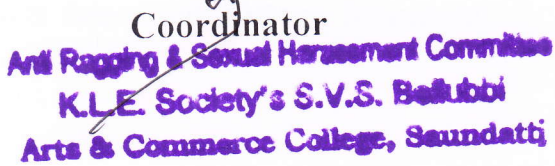 Coordinator
Anti Ragging & Sexual Harassment Committee
K.L.E. Society's S.V.S. Bellubbi
Arts & Commerce College, Saundatti